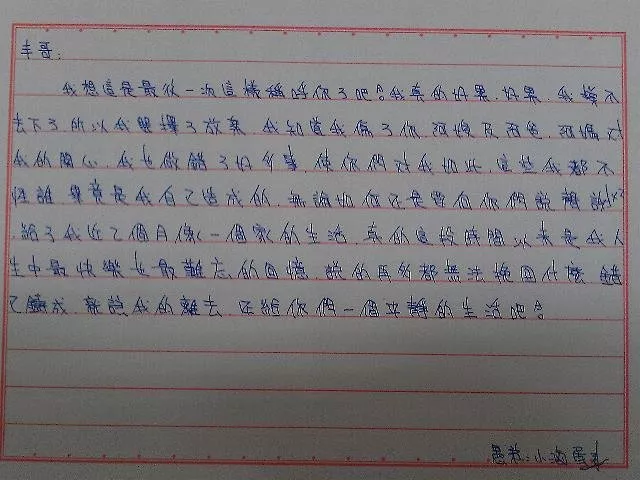 丰哥:
我想這是最後一次這樣稱呼你了吧。我真的好累.好累.我撐不
去下了所以我選擇了放棄.我知道我傷了你.
我的關心.我也做錯了好多事.使你們對我如此.這些我都不
怪誰.畢竟是我自己造成的.無論如何还是要向你們說謝謝
給了我近2個月像一個家的生活.真的這段時間以來是我人
生中最快樂也最難忘的回憶.說的再多都無法挽回什麼.錯
已鑄成.就讓我的離去.还給你們一個平靜的生活吧。
愚弟:小